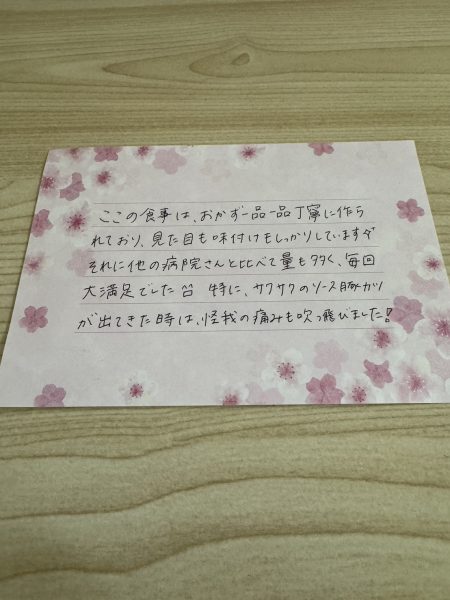 ここの食事は、おかず一品一品丁寧に作ら
れており、見た目も味付けもしっかりしています
それに他の病院さんと比べて量も多く、毎回
大満足でした 特に、サクサクのソース豚カツ
が出てきた時は、怪我の痛みも吹っ飛びました!